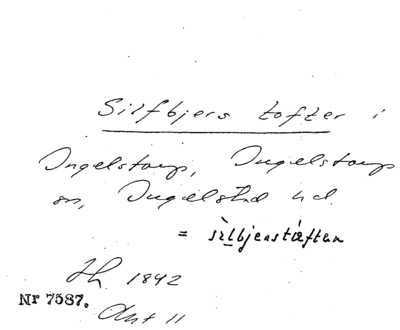 Silfbjers tofter i
Ingelstorp, Ingelstorps
sn, Ingelstad hd.
= sìlbjenstǽften
1842
Nr 7587. Ant 11